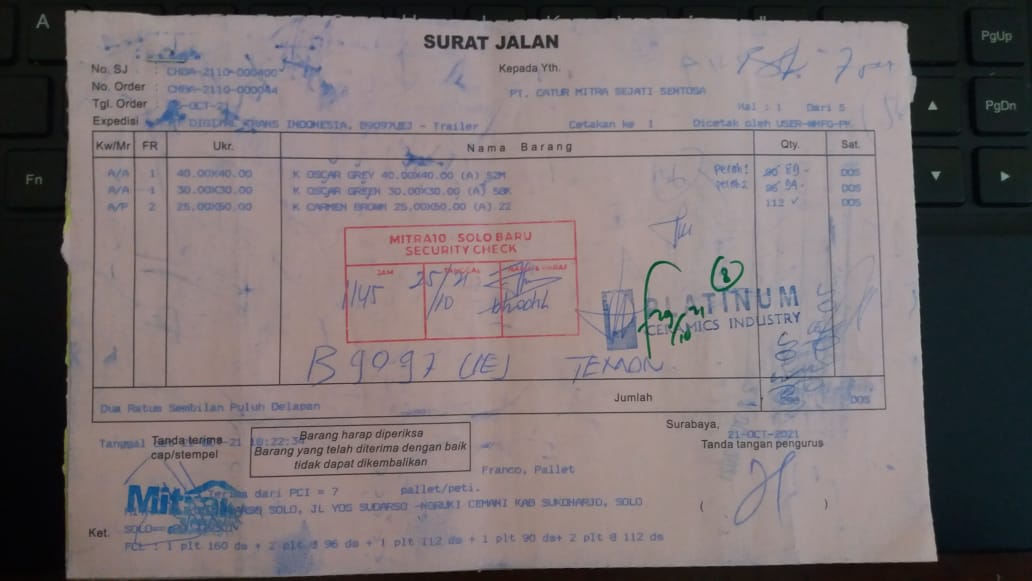 SURAT JALAN
No. SJ : CHBA-2110-000400
No. Order : CHBA-2110-000044
Tgl. Order : -OCT-21
Expedisi DIGITAL TRANS INDONESIA, B9097UEJ - Trailer
Kepada Yth.
PT. CATUR MITRA SEJATI SENTOSA
Hal : 1 Dari 5
Cetakan ke 1 Dicetak oleh USER-WHFG-PK
Kw/Mr FR Ukr. Nama Barang Qty. Sat.
A/A 1 40.00X40.00 K OSCAR GREY 40.00X40.00 (A) S2M 90 89 - DOS
A/A 1 30.00X30.00 K OSCAR GREEN 30.00X30.00 (A) 96 94 - DOS
A/P 2 25.00X50.00 K CARMEN BROWN 25.00X50.00 (A) 22 112 ✓ DOS
MITRA10 - SOLO BARU
SECURITY CHECK
JAM TANGGAL
1145 25/10 21
8
PLATINUM
CERAMICS INDUSTRY
B 9097 UEJ
Jumlah DOS
Dua Ratus Sembilan Puluh Delapan
Surabaya,
21-OCT-2021
Tanda tangan pengurus
( )
Tanggal
Tanda terima
cap/stempel
Barang harap diperiksa
Barang yang telah diterima dengan baik
tidak dapat dikembalikan
Franco, Pallet
Terima dari PCI = 7 pallet/peti.
SOLO, JL YOS SUDARSO -NGRUKI CEMANI KAB SUKOHARJO, SOLO
Ket. SOLO
FCL : 1 plt 160 ds + 2 plt @ 96 ds + 1 plt 112 ds + 1 plt 90 ds+ 2 plt @ 112 ds
A
Fn
PgUp
PgDn